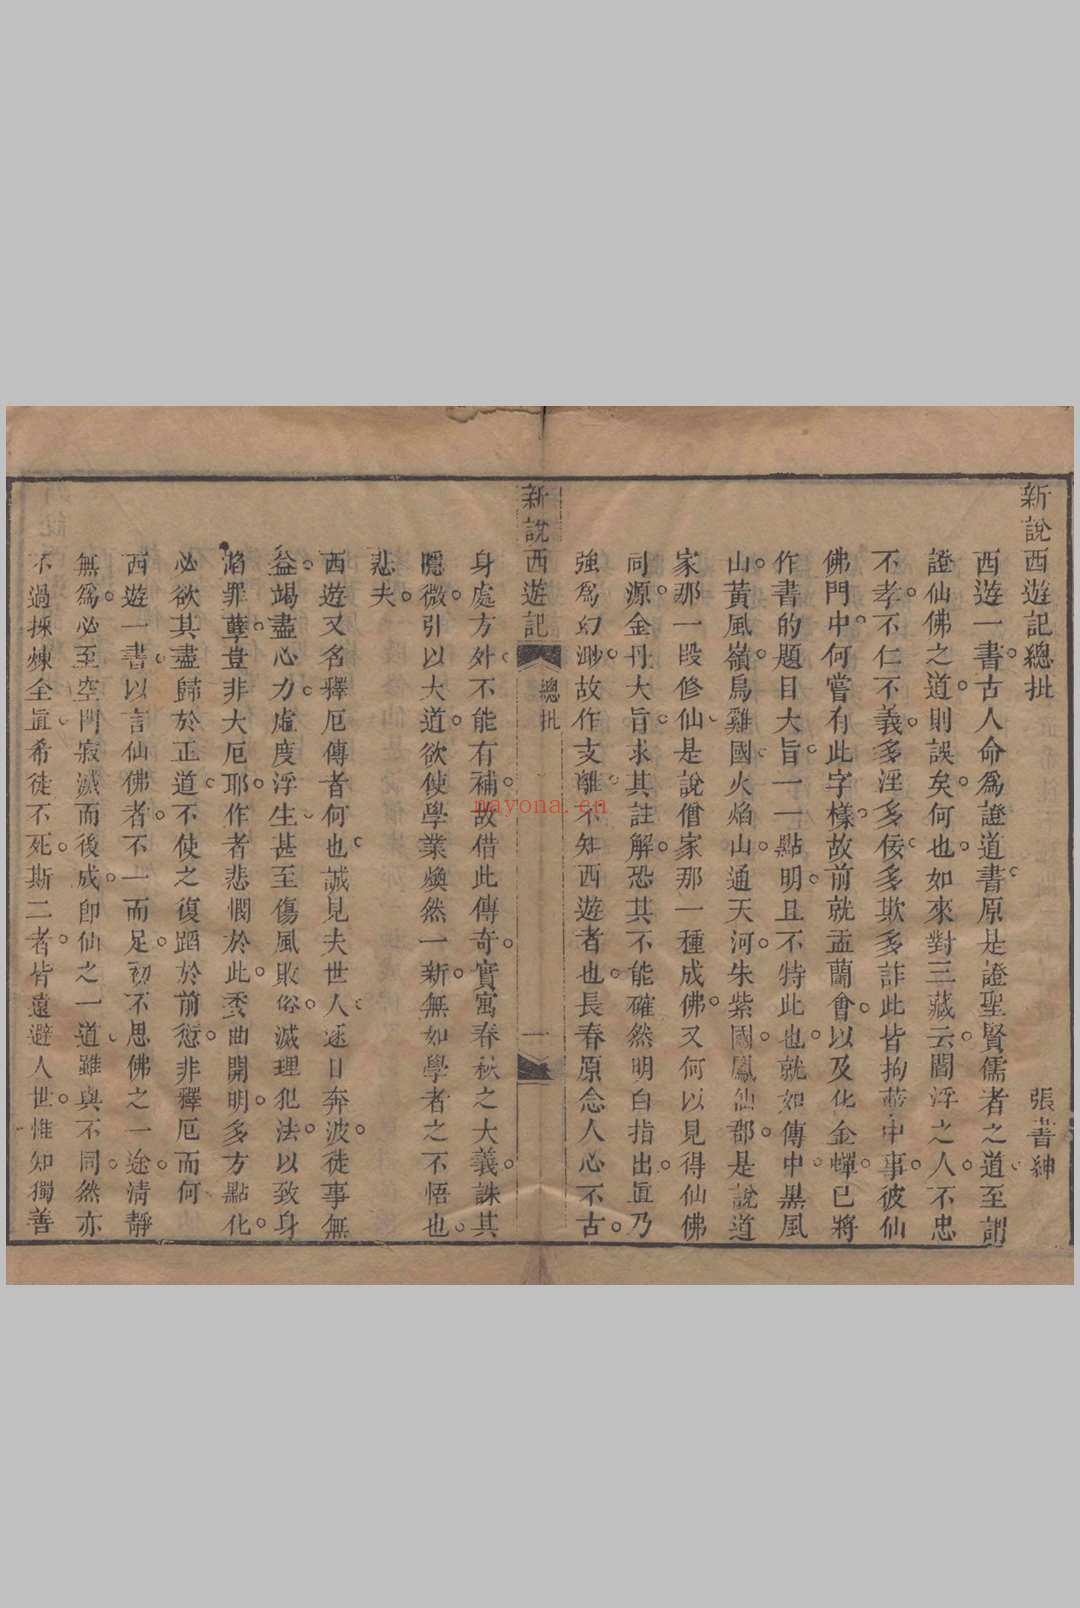 新說西遊記總批
張書紳
西遊一書古人命爲證道書原是證聖賢儒者之道至謂
證仙佛之道則誤矣何也如來對三藏云閻浮之人不忠
不孝不仁不義多淫多佞多欺多詐此皆拘蔽中事彼仙
佛門中何嘗有此字樣故前就盂蘭會以及化金蟬已將
作書的題目大旨一一點明且不特此也就如傳中黑風
山黃風嶺烏雞國火焰山通天河朱紫國鳳仙郡是說道
家那一段修仙是說僧家那一種成佛又何以見得仙佛
同源金丹大旨求其註解恐其不能確然明白指出眞乃
強爲幻渺故作支離不知西遊者也長春原念人心不古
新說西遊記
總批
一
身處方外不能有補故借此傳奇實寓春秋之大義誅其
隱微引以大道欲使學業煥然一新無如學者之不悟也
悲夫
西遊又名釋厄傳者何也誠見夫世人逐日奔波徒事無
益竭盡心力虛度浮生甚至傷風敗俗滅理犯法以致身
陷罪孽豈非大厄耶作者悲憫於此委曲開明多方點化
必欲其盡歸於正道不使之復蹈於前愆非釋厄而何
西遊一書以言仙佛者不一而足初不思佛之一途清靜
無爲必至空門寂滅而後成卽仙之一道雖與不同然亦
不過採煉全眞希徒不死斯二者皆遠避人世惟知獨善
nayona.cn